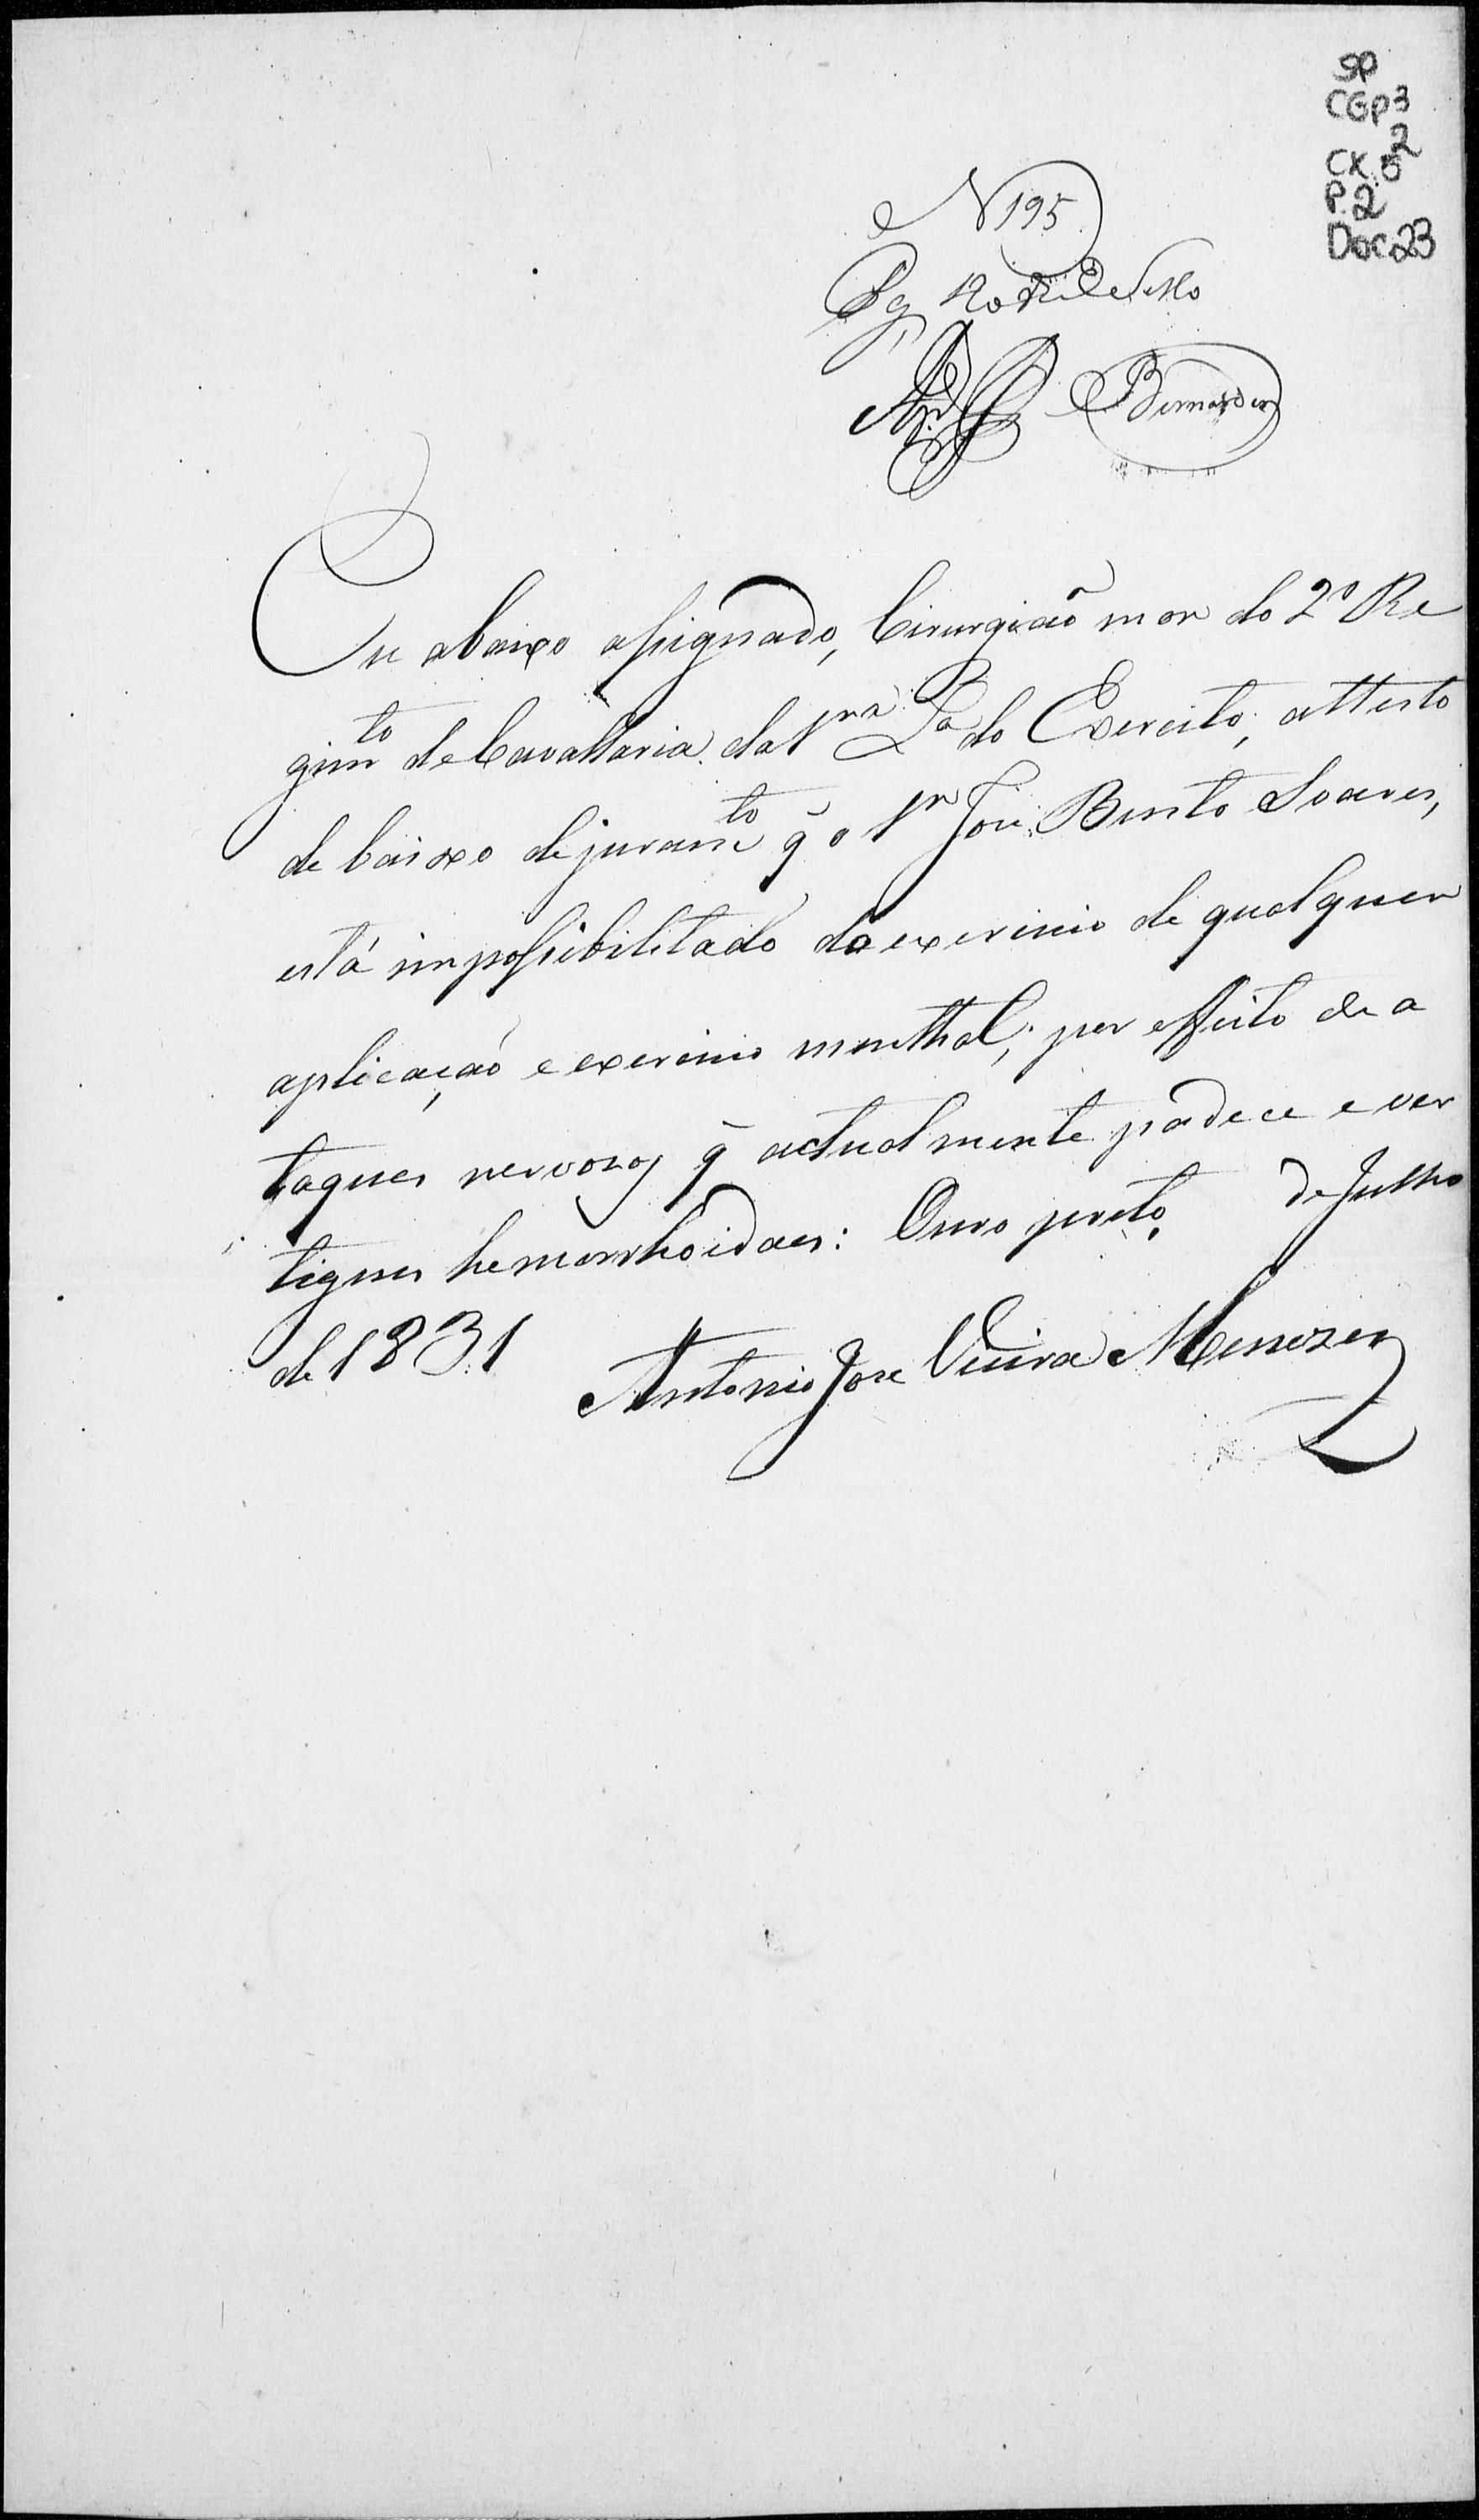 SP
CGP3
2
CX. 5
P. 2
Doc 23
N 195
Pg 120 rs de Sello
Bernardes
Eu abaixo assignado, Cirurgiaõ mor do 2º Re
gim.to de Cavallaria da 1.ra L.a do Exercito, attesto
de baixo de juram.to q̃ o Snr Jose Bento Soares,
está impossibilitado do exercicio de qualquer
aplicaçaõ e exercicio menthal; por effeito de a
taques nervosos q̃ actualmente padece e ver
tigues hemorrhoidaes: Ouro preto de Julho
de 1831
Antonio Jose Vieira Menezes